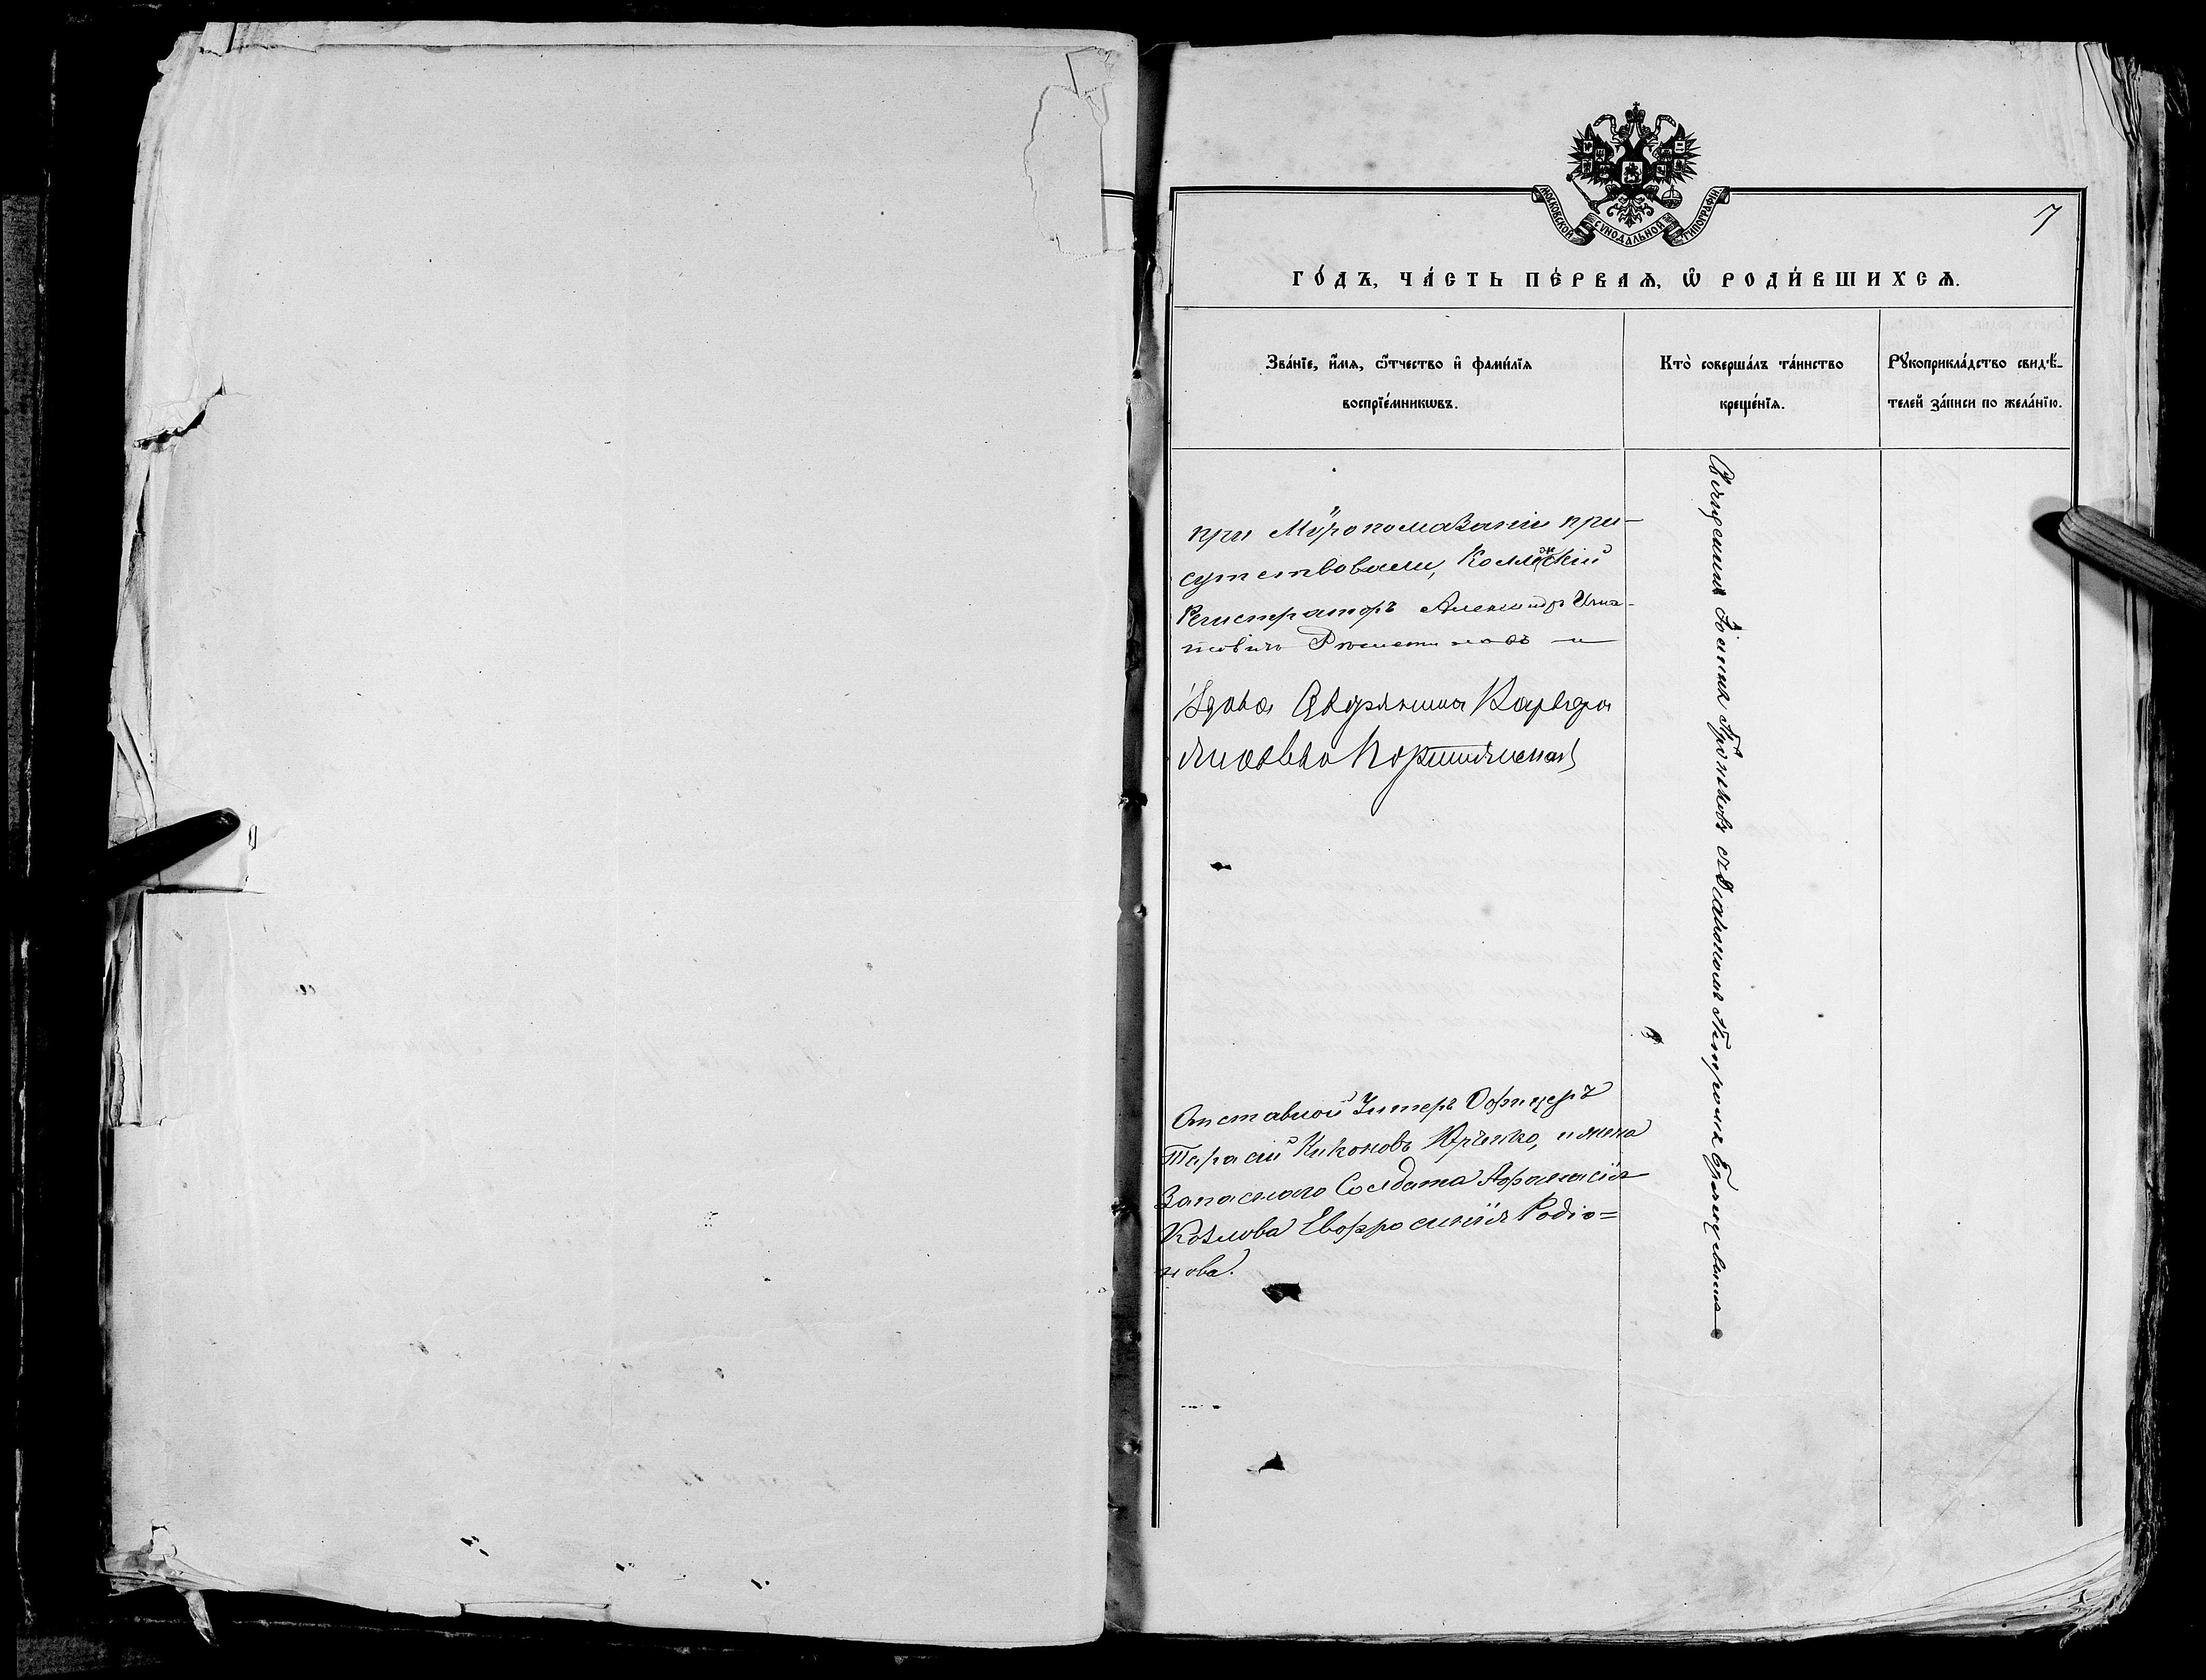 МОСКОВСКОЙ СѴНОДАЛЬНОЙ ТИПОГРАФІИ
7
ГО́ДЪ, ЧА́СТЬ ПЕ́РВАѦ, Ѡ҆ РОДИ́ВШИХСѦ.
Зва́нїе, и҆́мѧ, ѻ҆́тчество и҆ фами́лїѧ
воспрїе́мникѡвъ.
Кто̀ соверша́лъ та́инство
креще́нїѧ.
Рꙋкоприкла́дство свидѣ́-
телей за́писи по жела́нїю.
при Мѵропомазаніи при-
сутствовали, Коллежскій
Регистраторъ Александръ Игна-
тьевичъ и
Вдова Дворянина Варвара
Отставной Унтеръ Офицеръ
Тарасій Никоновъ Юрченко, и жена
Запаснаго Солдата Афанасія
Козлова Евфросинія Родіо=
нова.
Священникъ Іоаннъ съ Діакономъ Петромъ